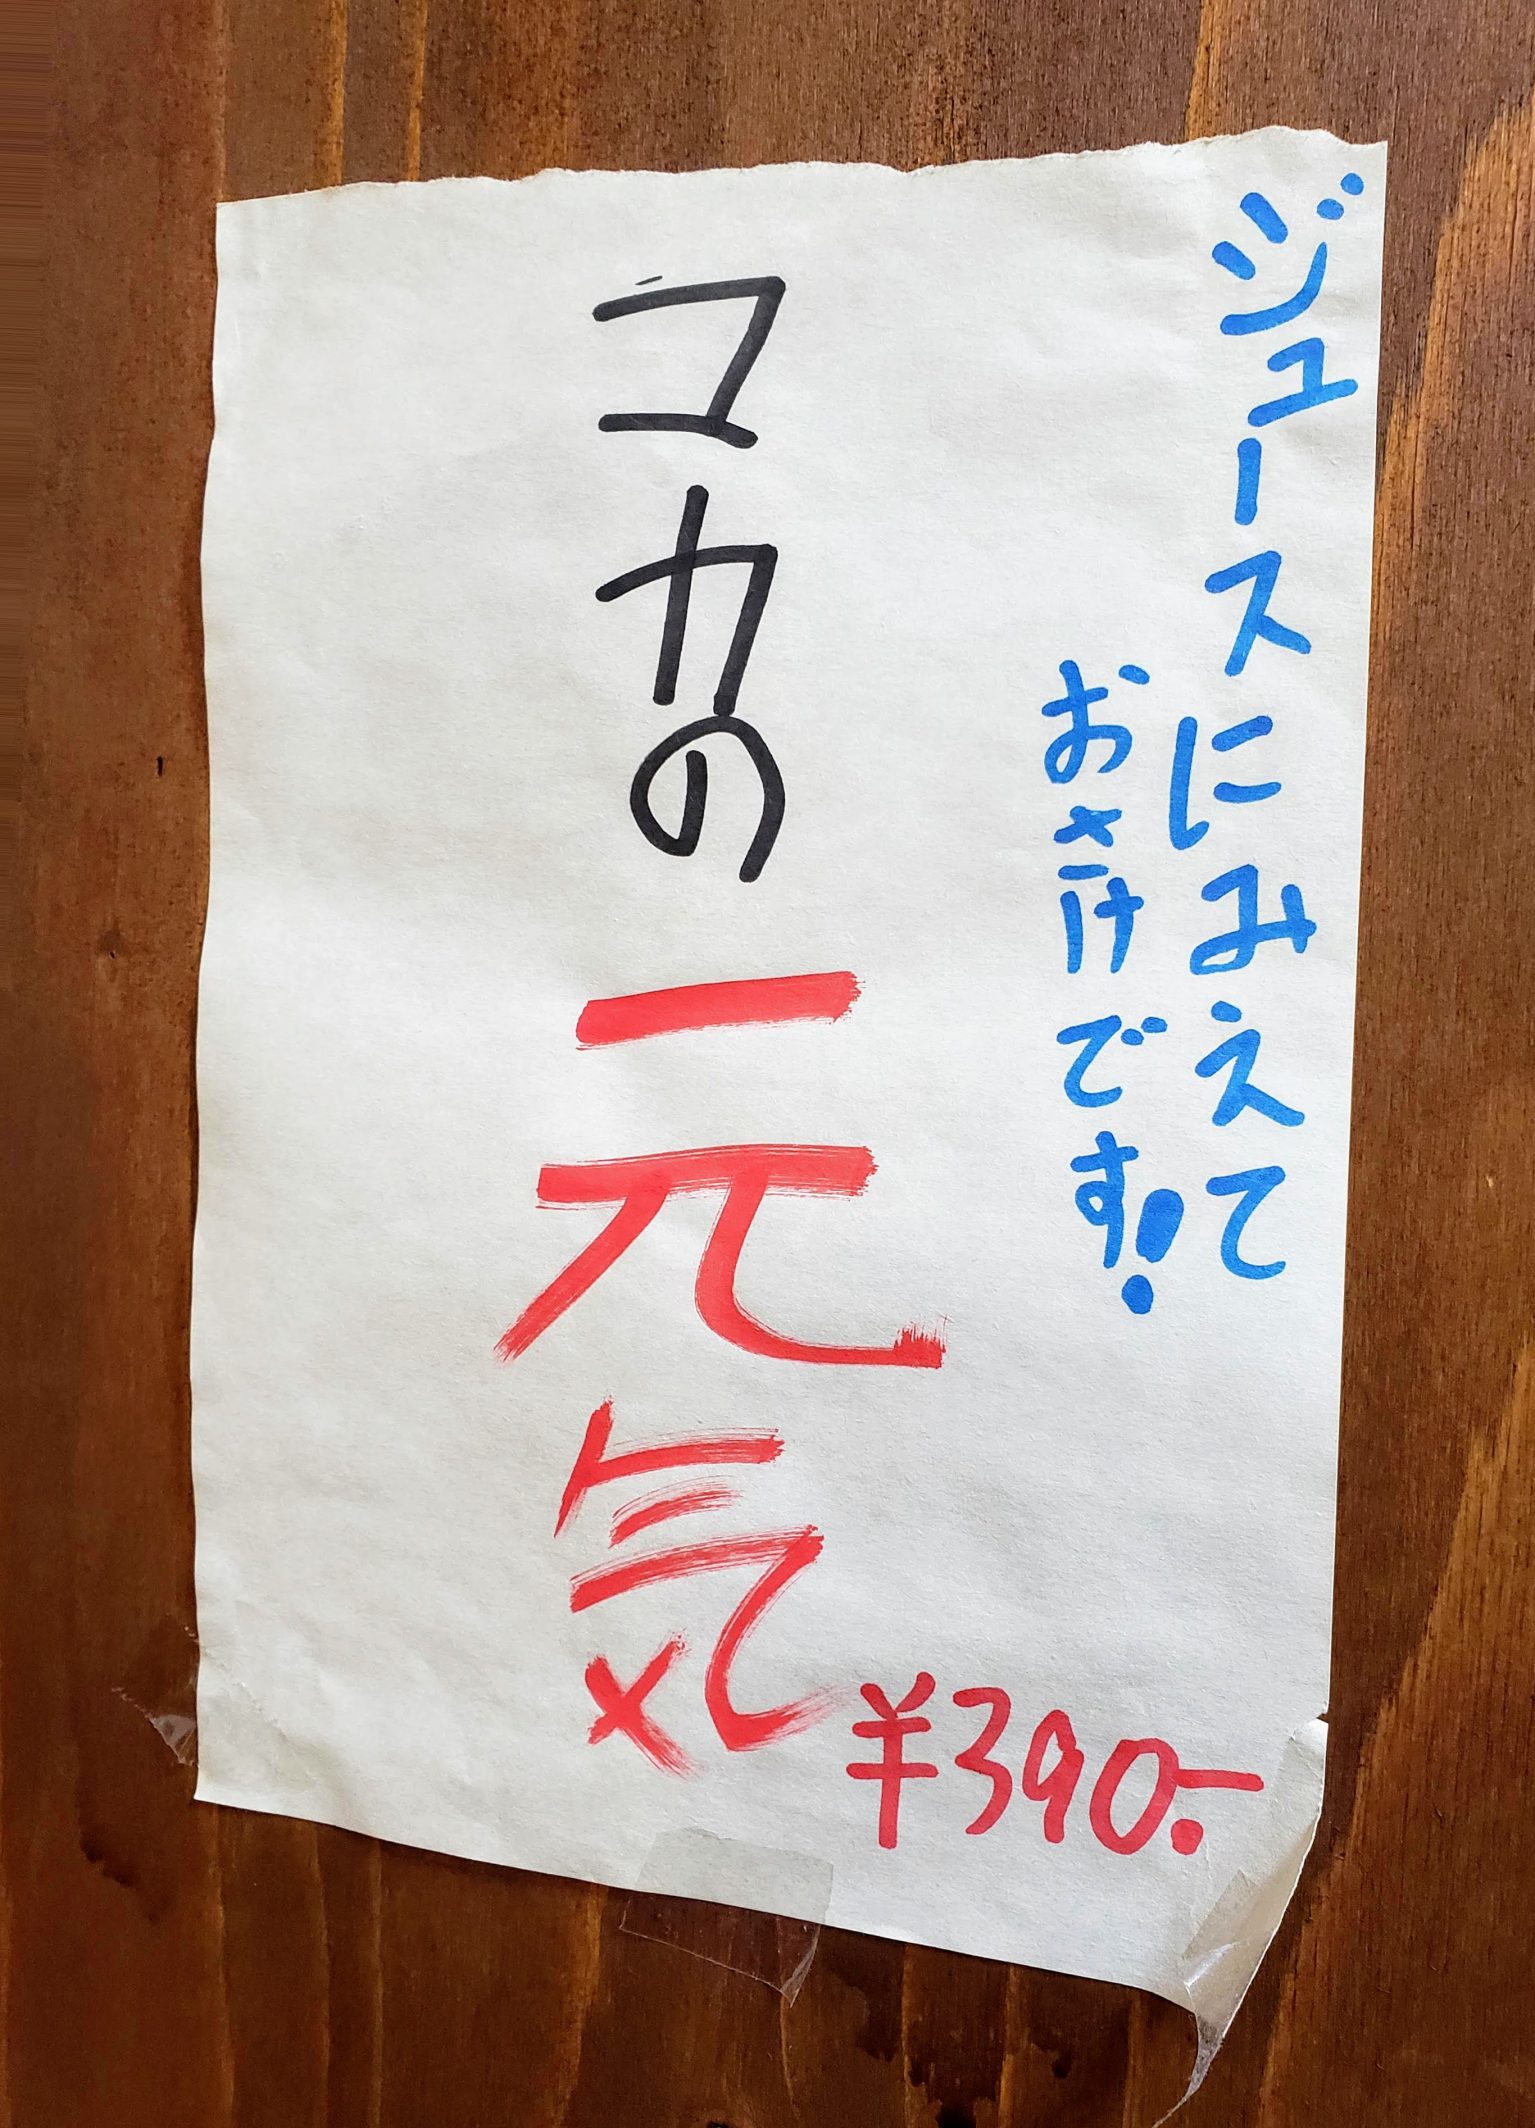 ジュースにみえて
おさけです!
コカの元気
¥390.-